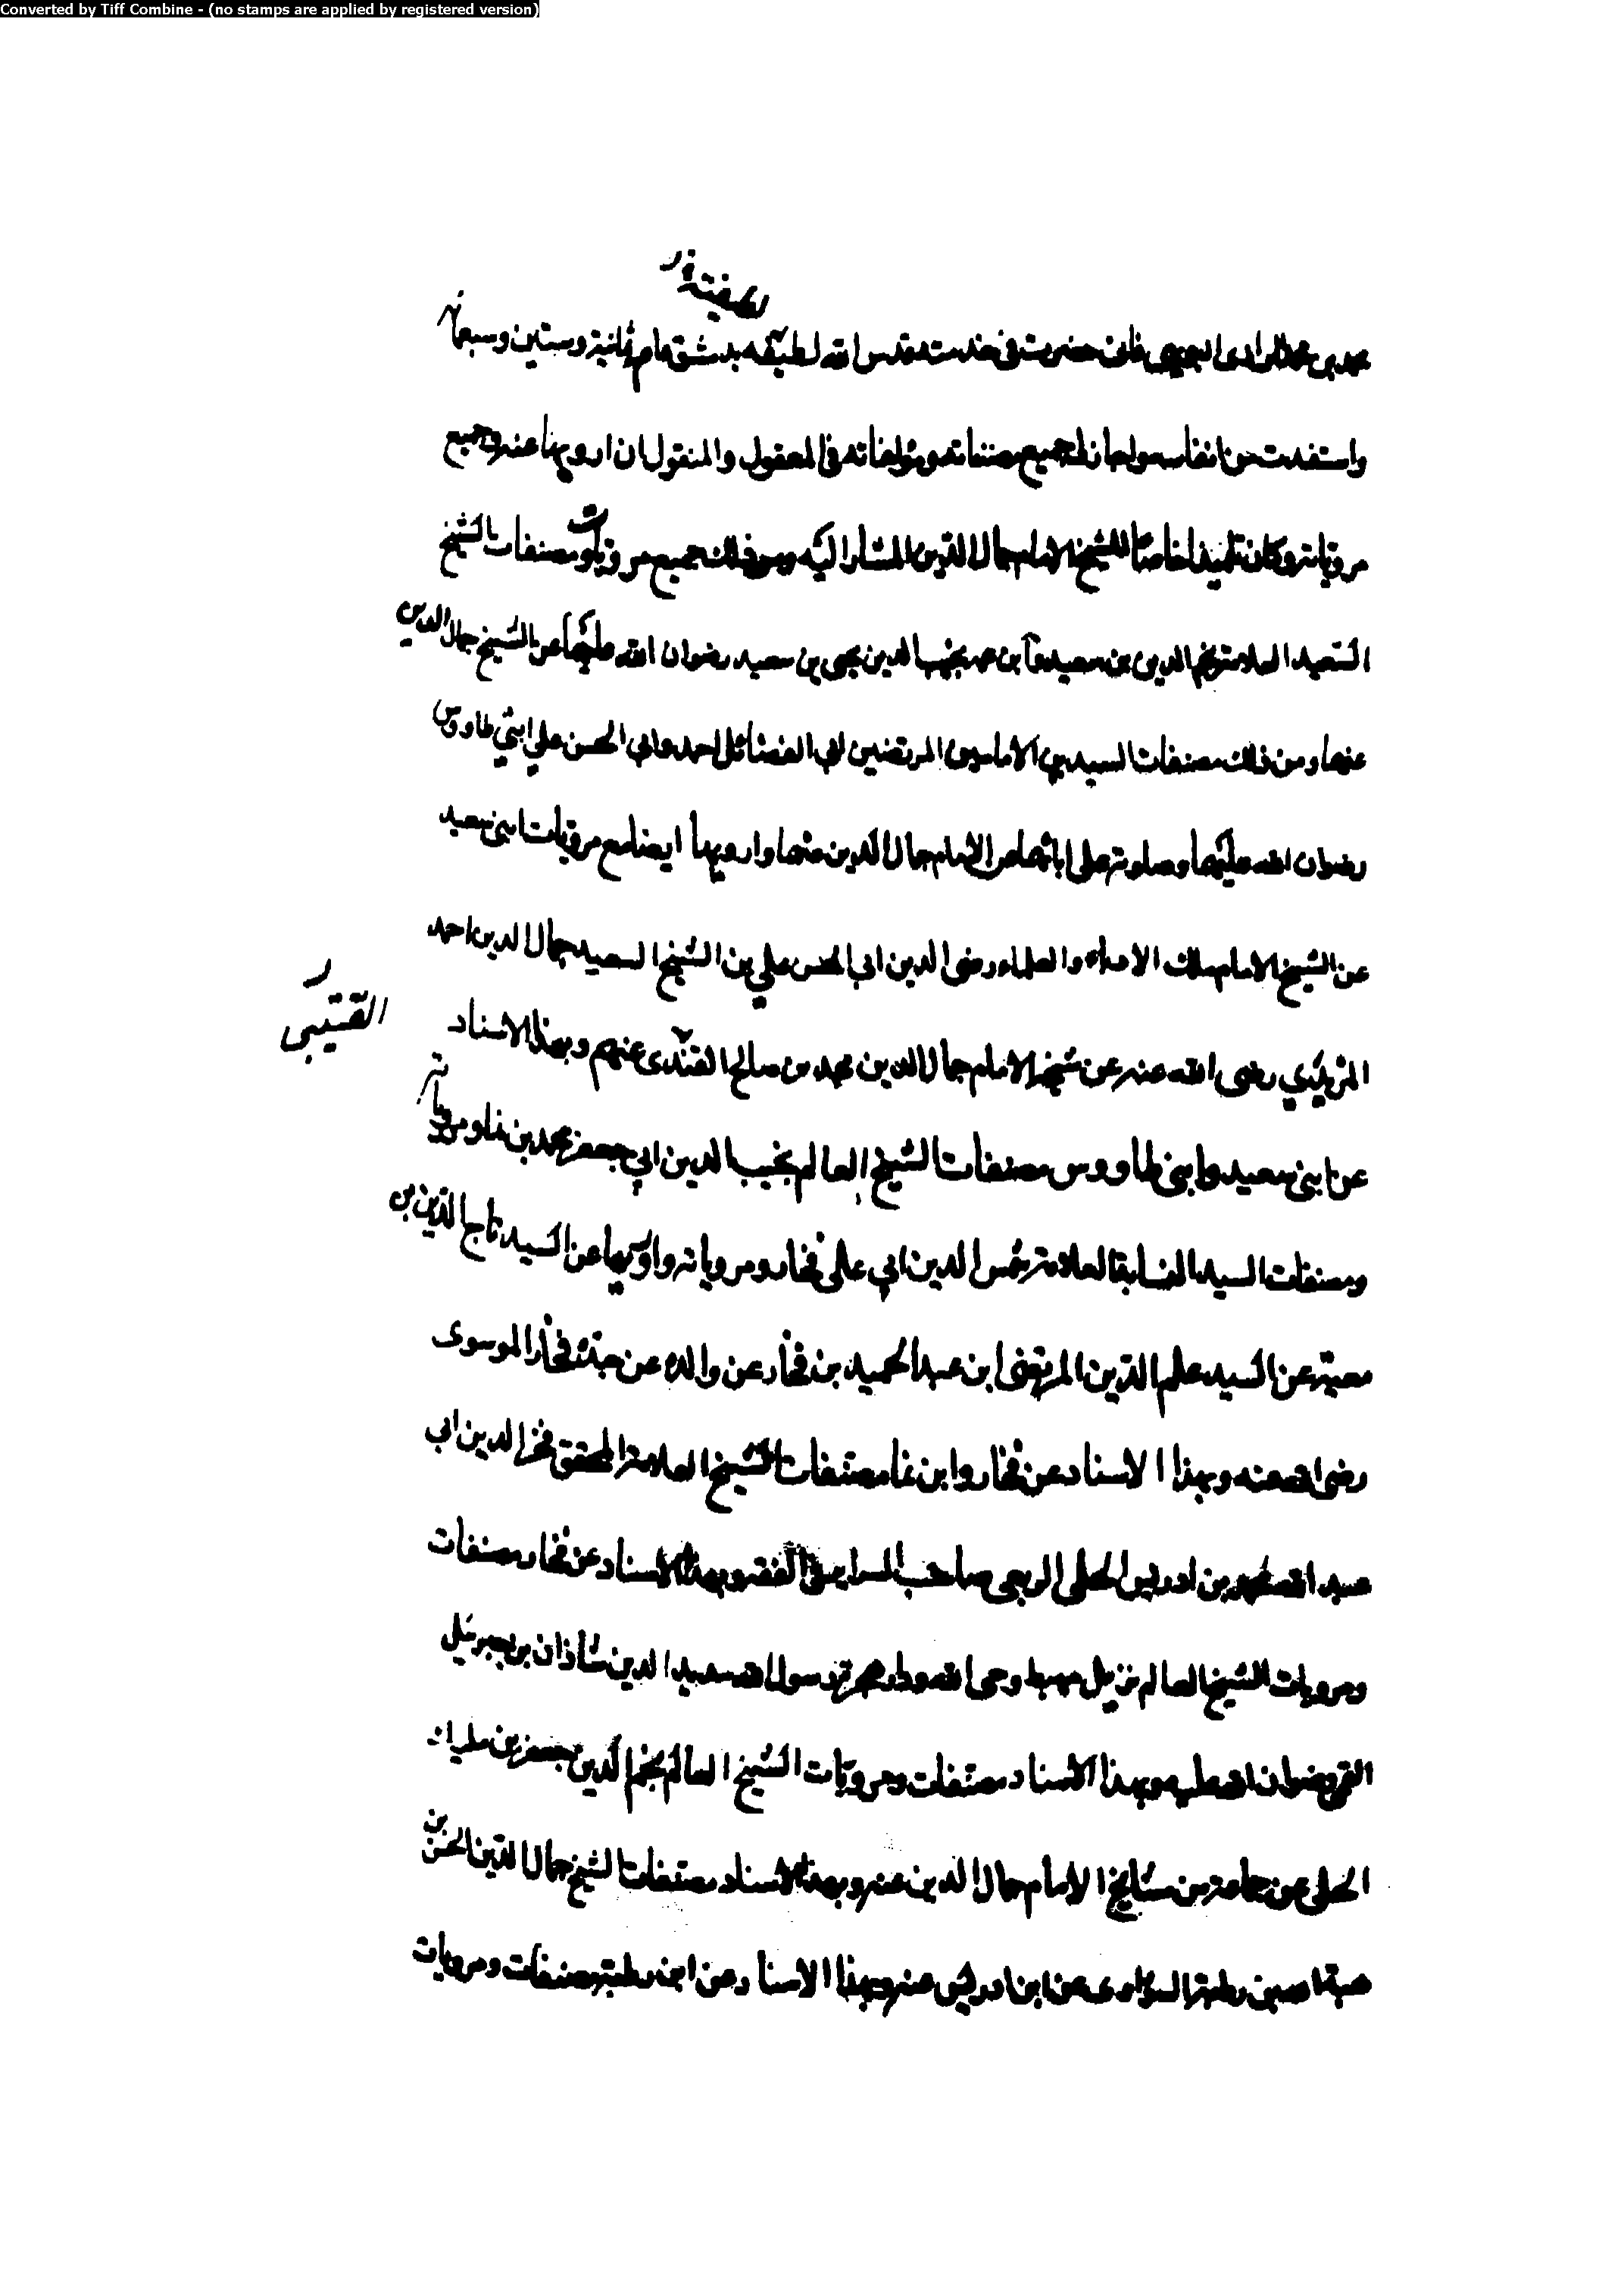 Converted by Tiff Combine - (no stamps are applied by registered version)
محمد بن محمد الرازي البويهي فاني حضرت في خدمته قدس الله لطيفه بدمشق عام ثمانية وستين وسبعمائة
واستفدت من انفاسه واجاز لي جميع مصنفاته ومؤلفاته في المعقول والمنقول ان ارويها عنه وجميع
مروياته وكان تلميذا خاصا للشيخ الامام جمال الدين المشار اليه ومن ذلك جميع مرويات ومصنفات الشيخ
السعيد العلامة نجم الدين بن سعيد وابن عمه نجيب الدين يحيى بن سعيد رضوان الله عليهما عن الشيخ جمال الدين
عنهما ومن ذلك مصنفات السيدين الامامين المرتضين ابي الفضائل احمد وابي الحسن علي ابني طاووس
رضوان الله عليهما وصلوته على ابائهما عن الامام جمال الدين عنهما وارويها ايضا مع مرويات ابني سعيد
عن الشيخ الامام ملك الادباء والعلماء رضى الدين ابي الحسن علي بن الشيخ السعيد جمال الدين احمد
المزيدي رضى الله عنه عن شيخه الامام جمال الدين محمد بن صالح القندى عنهم وبهذا الاسناد
القسيبى
عن ابنى سعيد وابنى طاووس مصنفات الشيخ العالم نجيب الدين ابي جعفر محمد بن نما ومروياته
ومصنفات السيد النسابة العلامة شمس الدين ابي علي فخار ومروياته وارويها عن السيد تاج الدين بن
معية عن السيد علم الدين المرتضى ابن عبد الحميد بن فخار عن والده عن جده فخار الموسوى
رضى الله عنه وبهذا الاسناد عن فخار وابن نما مصنفات الشيخ العلامة المحقق فخر الدين ابي
عبد الله محمد بن ادريس الحلى الربعى صاحب السراير في الفقه وبهذا الاسناد عن فخار مصنفات
ومرويات الشيخ العالم نزيل مهبط وحى الله ودار هجرة رسول الله سديد الدين شاذان بن جبرئيل
القمى رضوان الله عليه وبهذا الاسناد مصنفات ومرويات الشيخ العالم نجم الدين جعفر بن مليك
الحلى عن جماعة من مشايخ الامام جمال الدين عنه وبهذا الاسناد مصنفات الشيخ جمال الدين الحسن بن
هبة الله بن رطبة السوراوى عن ابن ادريس عنه وبهذا الاسناد عن ابن رطبة مصنفات ومرويات